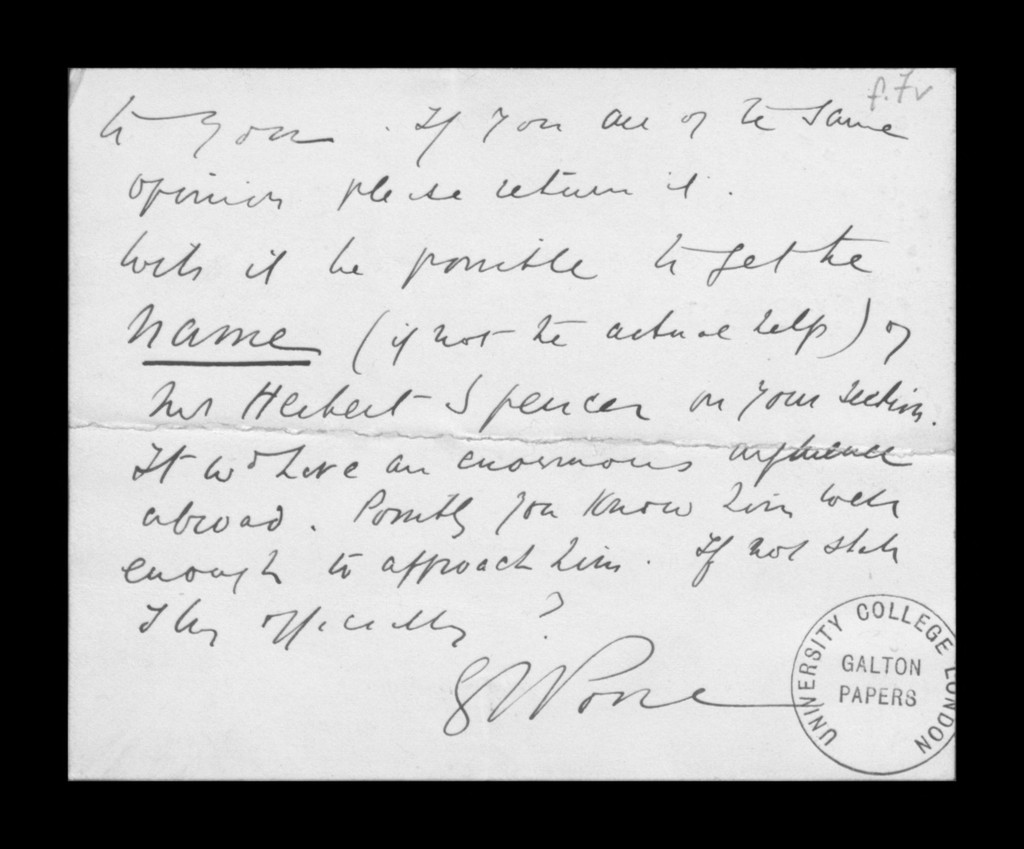 f.7v
to you. If you are of the same
opinion please return it.
Will it be possible to get the
name (if not the actual help) of
Mr Herbert Spencer on your section.
It wd have an enormous influence
abroad. Possibly you know him well
enough to approach him. If not shall
I by officially?
UNIVERSITY COLLEGE LONDON
GALTON
PAPERS